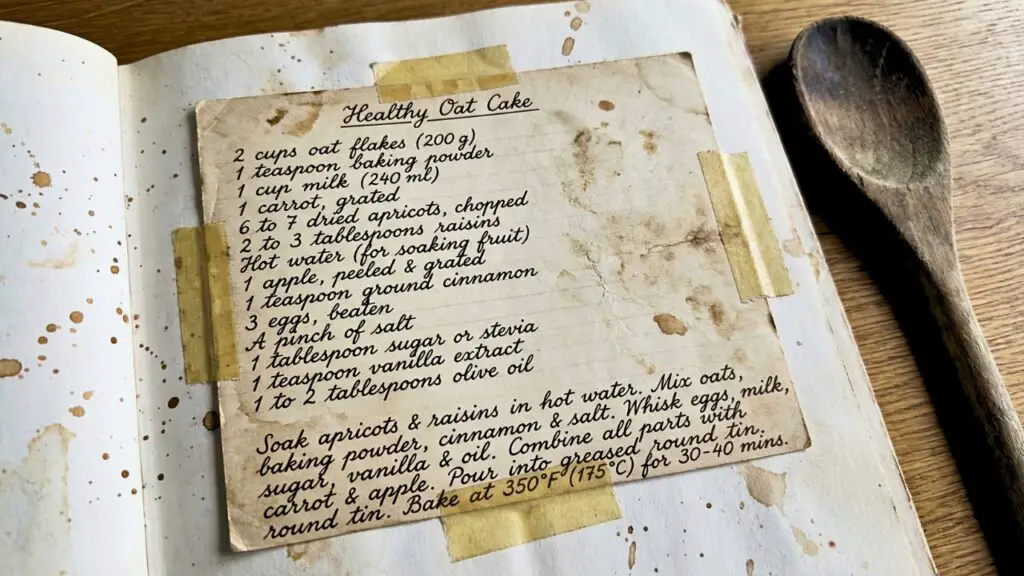 Healthy Oat Cake
2 cups oat flakes (200 g)
1 teaspoon baking powder
1 cup milk (240 ml)
1 carrot, grated
6 to 7 dried apricots, chopped
2 to 3 tablespoons raisins
Hot water (for soaking fruit)
1 apple, peeled & grated
1 teaspoon ground cinnamon
3 eggs, beaten
A pinch of salt
1 tablespoon sugar or stevia
1 teaspoon vanilla extract
1 to 2 tablespoons olive oil
Soak apricots & raisins in hot water. Mix oats,
baking powder, cinnamon & salt. Whisk eggs, milk,
sugar, vanilla & oil. Combine all parts with
carrot & apple. Pour into greased round tin.
round tin. Bake at 350°F (175°C) for 30-40 mins.